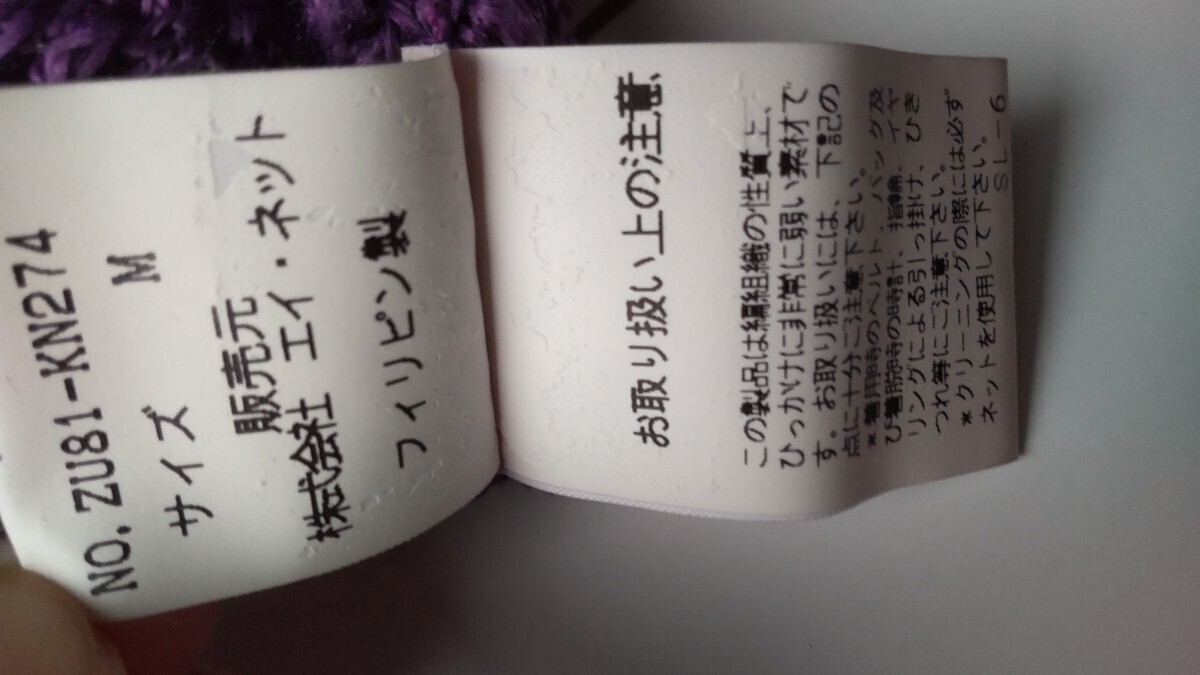 NO. ZU81-KN274
サイズ M
販売元
株式会社 エイ・ネット
フィリピン製
お取り扱い上の注意
この製品は編組織の性質上、
ひっかけに非常に弱い素材で
す。お取り扱いには、下記の
点に十分ご注意下さい。
*着用時のベルト、バッグ及
び着脱時の時計、指輪、イヤ
リングによる引っ掛け、ひき
つれ等にご注意下さい。
*クリーニングの際には必ず
ネットを使用して下さい。
SL-6